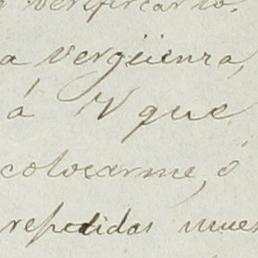 verificarlo.
a vergüenza,
á V que
colocarme, ó
repetidas mues